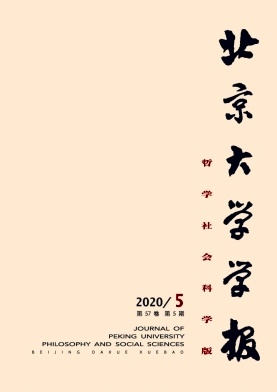 北京大学学报
哲学社会科学版
2020/5
第57卷 第5期
JOURNAL OF
PEKING UNIVERSITY
PHILOSOPHY AND SOCIAL SCIENCES
BEIJING DAXUE XUEBAO